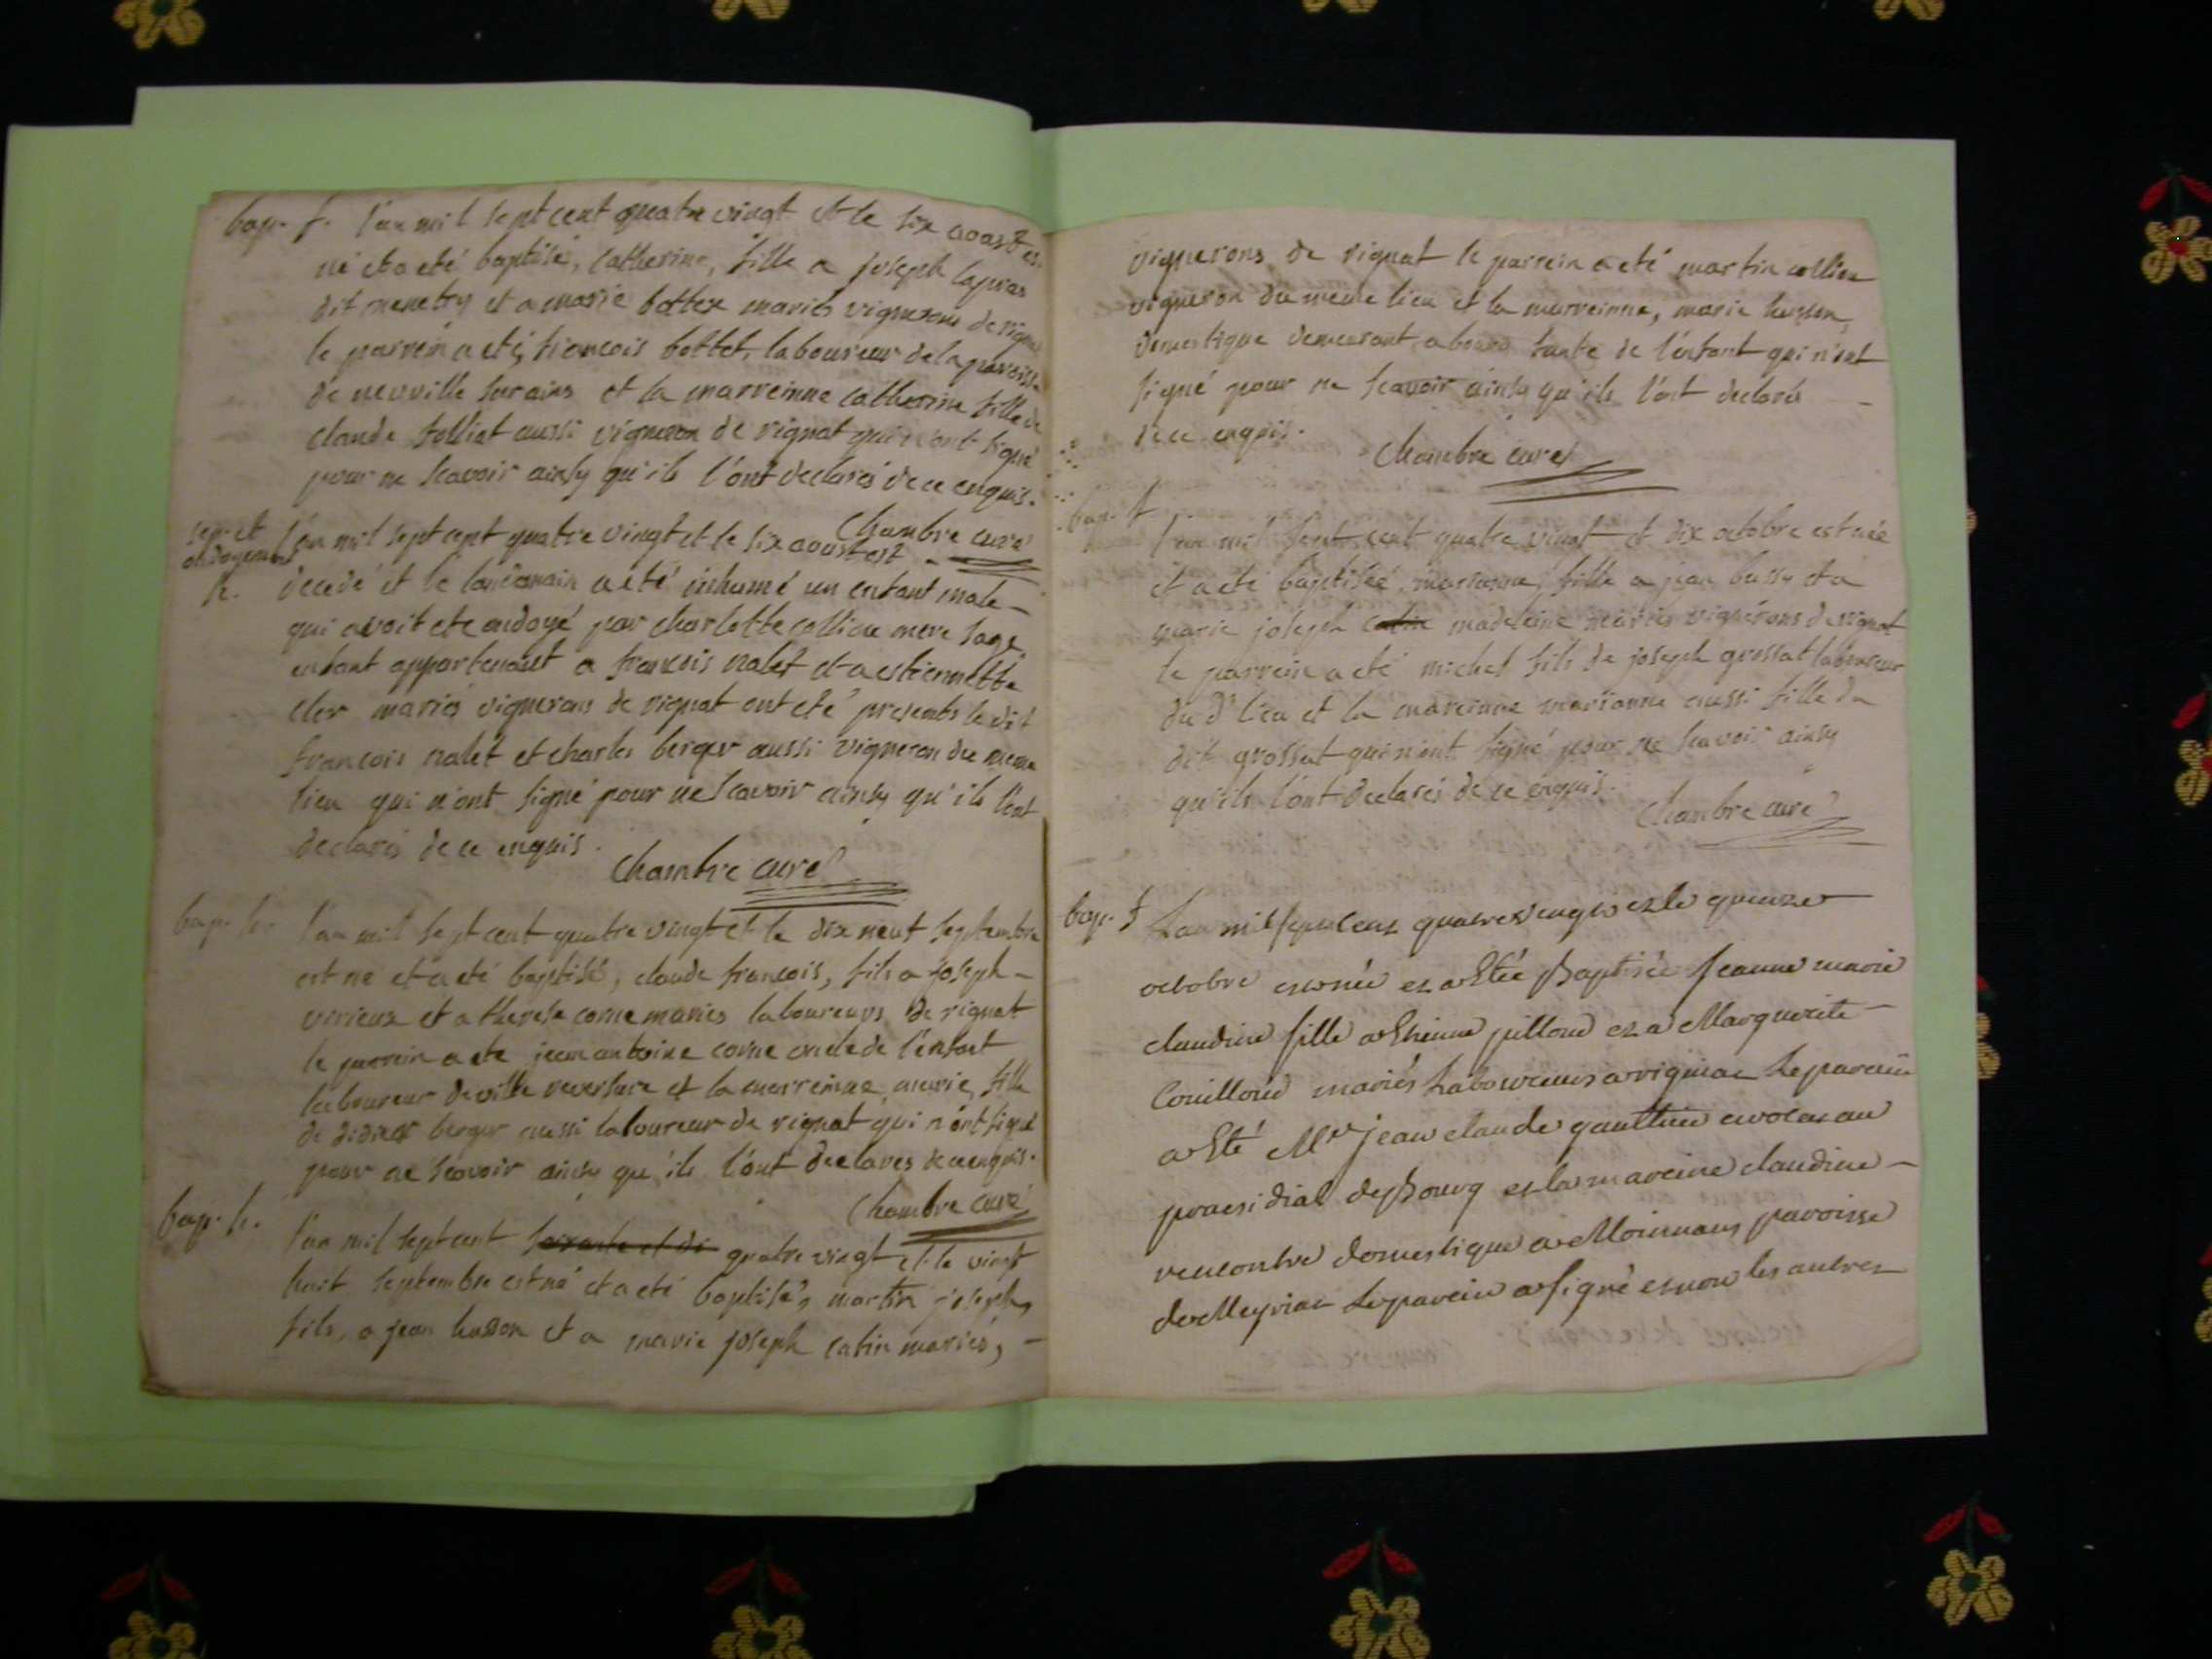 bap. f. l'an mil sept cent quatre vingt et le six aoust est
né et a eté baptisé, catherine, fille a joseph lapras
dit menetry et a marie bottex mariés vignerons de rignat
le parrein a eté, francois bottet, laboureur de la paroisse
de neuville sur ains et la marreinne catherine fille de
claude folliat aussi vigneron de rignat qui n'ont signé
pour ne scavoir ainsy qu'ils l'ont declarés de ce enquis.
Chambre curé
sep. et
ondoyement
h.
l'an mil sept cent quatre vingt et le six aoust est
decedé et le landemain a eté inhumé un enfant male
qui avoit ete ondoyé par charlotte colliou mere sage,
enfant appartenant a francois nalet et a estiennette
cler mariés vignerons de rignat ont eté presents le dit
francois nalet et charles berger aussi vigneron du meme
lieu qui n'ont signé pour ne scavoir ainsy qu'ils l'ont
declarés de ce enquis.
Chambre curé
bap. h. l'an mil sept cent quatre vingt et le dix neuf septembre
est né et a eté baptisé, claude francois, fils a joseph
verieux et a therese corne mariés laboureurs de rignat
le parrein a ete jean antoine corne oncle de l'enfant
laboureur de ville reversure et la marreinne, marie, fille
de didier berger aussi laboureur de rignat qui n'ont signé
pour ne scavoir ainsy qu'ils l'ont declarés de ce enquis.
Chambre curé
bap. h. l'an mil sept cent soixante et di quatre vingt et le vingt
huit septembre est né et a eté baptisé, martin joseph,
fils, a jean husson et a marie joseph catin mariés,
vignerons de rignat le parrein a eté martin colliou
vigneron du meme lieu et la marreinne, marie husson,
domestique demeurant a bourg tante de l'enfant qui n'ont
signé pour ne scavoir ainsy qu'ils l'ont declarés
de ce enquis.
Chambre curé
bap. f
l'an mil sept cent quatre vingt et dix octobre est née
et a eté baptiseé, marianne, fille a jean bussy et a
marie joseph catin madeleine mariés vignérons de rignat
le parrein a eté michel fils de joseph grossat laboureur
du dt lieu et la mareinne marianne aussi fille du
dit grossat qui n'ont signé pour ne scavoir ainsy
qu'ils l'ont declarés de ce enquis.
Chambre curé
bap. f Lan mil sept cent quatre vingt et le quinze
octobre est née et a Eteé Baptisée Jeanne marie
claudine fille a Etienne pilloud et a Marguerite
Couilloud mariés Laboureurs a rigniat Le parein
a Eté Mr jean claude gauthier avocat au
praesidial de Bourg et la mareine claudine
rencontre domestique a Moinans paroisse
de Meyriat Le parein a signé et non les autres